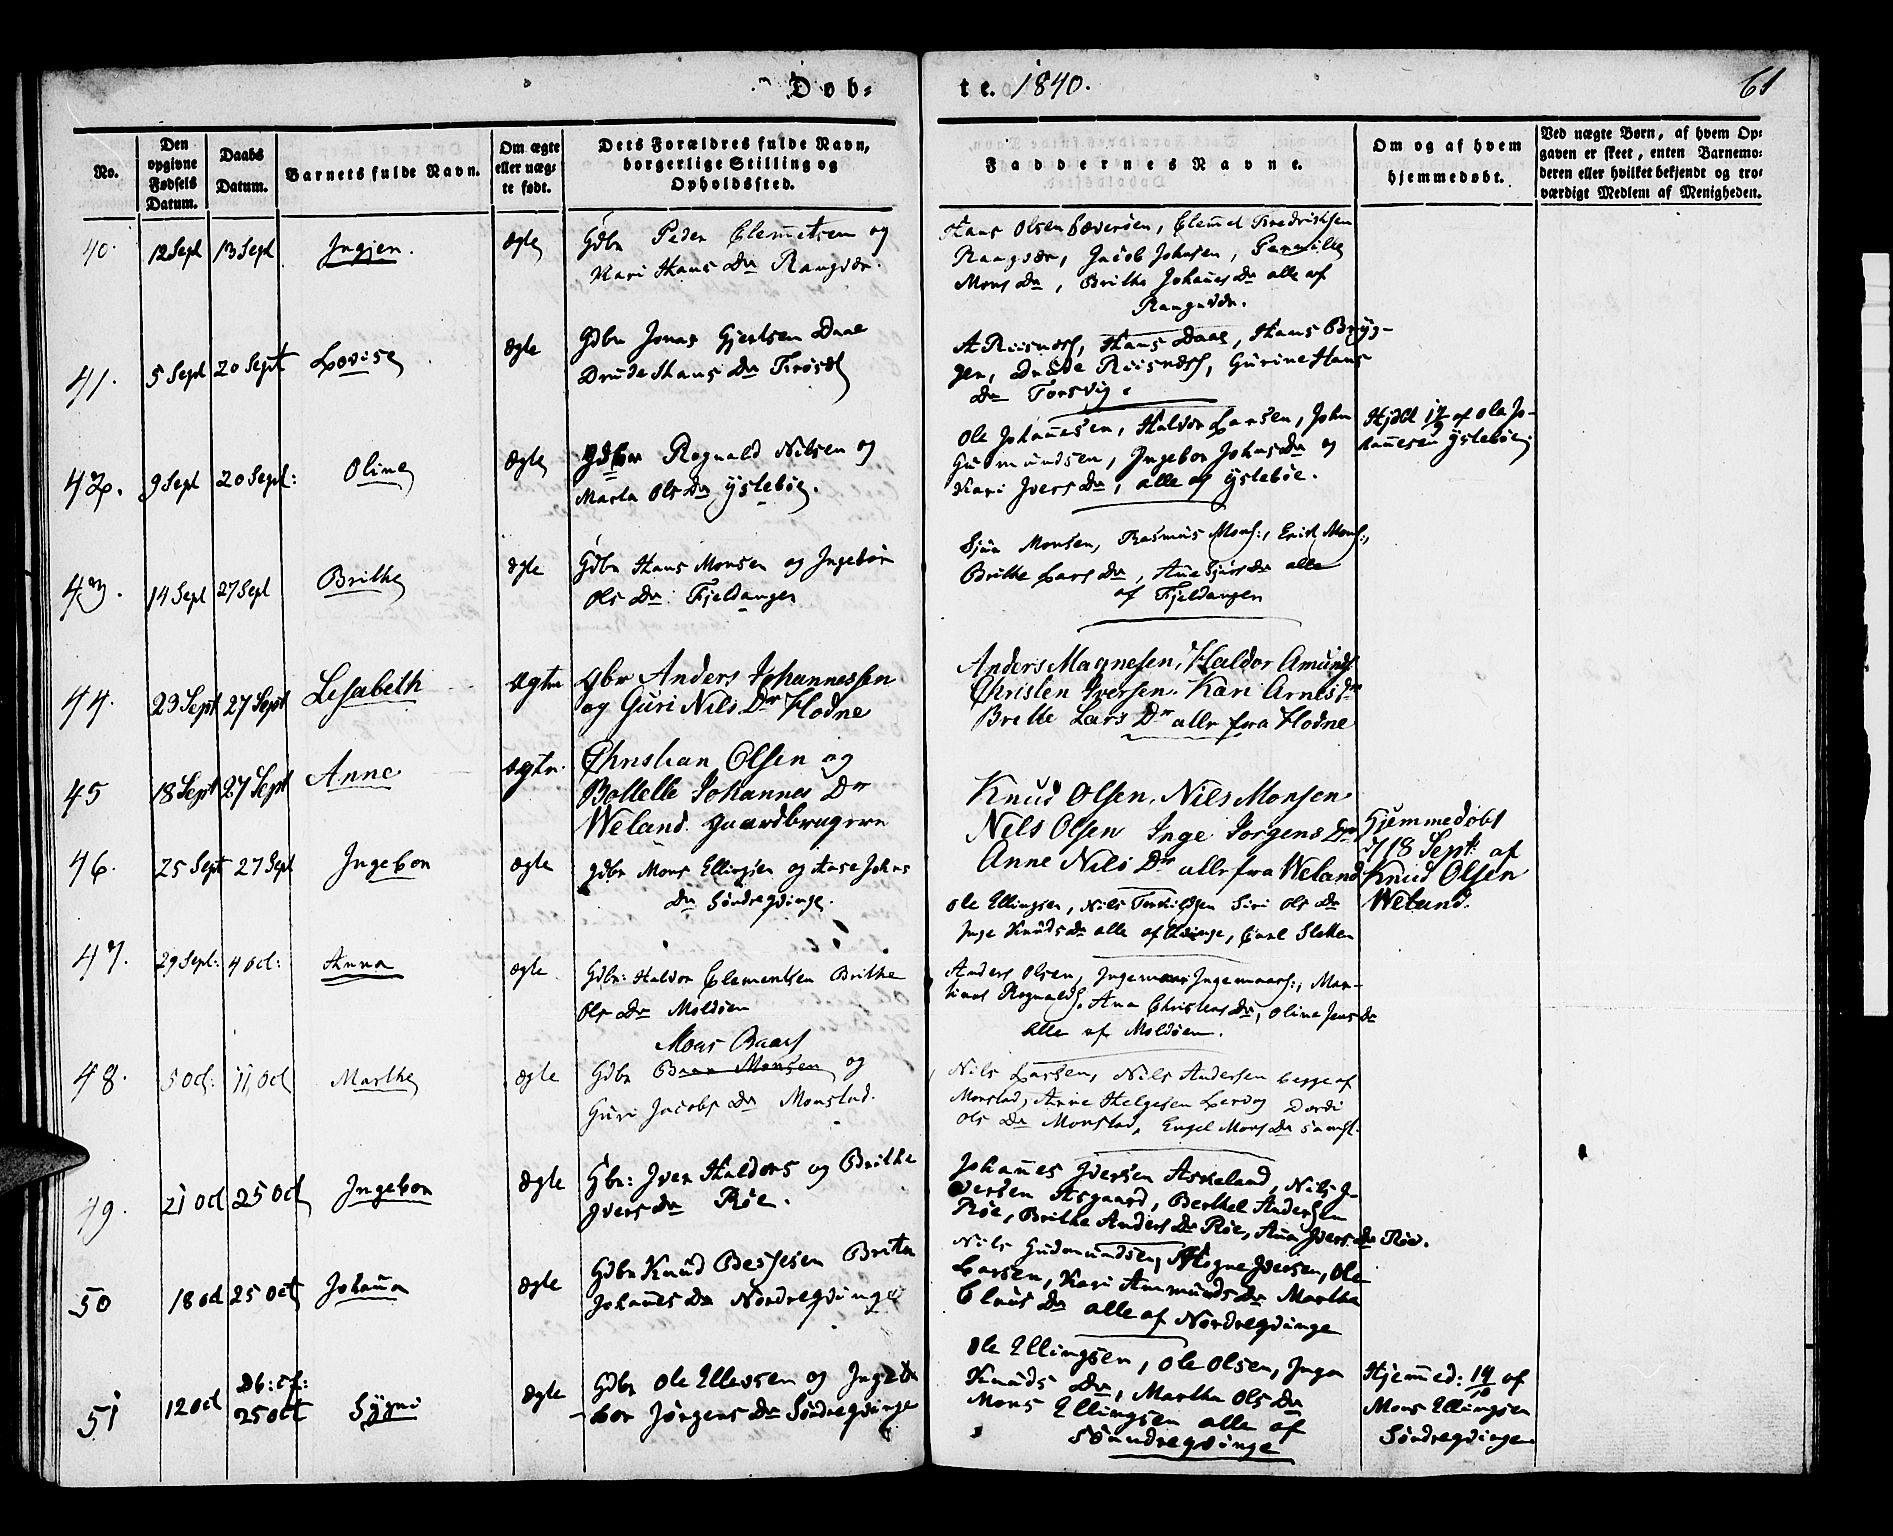 Døb-
te. 1840.
61
No.
Den
opgivne
Fødsels
Datum.
Daabs
Datum.
Barnets fulde Navn.
Om ægte
eller uæg-
te født.
Dets Forældres fulde Navn,
borgerlige Stilling og
Opholdssted.
Faddernes Navne.
Om og af hvem
hjemmedøbt.
Ved uægte Børn, af hvem Op-
gaven er skeet, enten Barnemo-
deren eller hvilket bekjendt og tro-
værdigt Medlem af Menigheden.
40. 12 Sept 13 Sept
ægte
Gdbr Peder Clemetsen og
Kari Hans Dr
Hans Olsen
Jacob Johnsen, Pernille
Mons Dr, Brithe Johañes Dr alle af
41. 5 Sept 20 Sept Lovise
ægte
Gdbr Jonas Gjertsen Daae
Drude Hans Dr
Hans Daae, Hans Bryg-
gen, Drude Gurine Hans
Dr Torsvig.
42. 9 Sept 20 Sept: Oline
ægte
Gdbr Rognald Nilsen og
Marta Ols Dr Ystebøe.
Ole Johañesen, Haldor Larsen, John
Gudmundsen, Ingebor Johns Dr og
Kari Ivers Dr, alle af Ystebøe.
af Ole Jo-
hañesen Ystebøe
43. 14 Sept 27 Sept Brithe
ægte
Gdbr Hans Monsen og Ingebor
Ols Dr Fjeldanger
Monsen, Rasmus Mons:, Erik Mons:,
Brithe Lars Dr, alle
af Fjeldanger
44. 23 Sept 27 Sept Lisabeth
ægte
Gbr Anders Johannessen
og Guri Nils Dr Hodne
Anders Magnesen, Haldor Amunds
Christen Iversen. Kari Arnes Dr
Britte Lars Dr alle fra Hodne
45 18 Sept 27 Sept Anne
ægte
Christian Olsen og
Johannes Dr
Weland. gaardbrugere
Knud Olsen, Nils Monsen
Nils Olsen Inge Jørgens Dr
Anne Nils Dr alle fra Weland
Hjemmedøbt
18 Sept: af
Knud Olsen
Weland.
46. 25 Sept 27 Sept Ingebor
ægte
gdbr Mons Ellingsen og Aase Johns
Dr Søndreqvinge.
Ole Ellingsen, Nils Siri Ols Dr
Inge Knuds Dr alle af Qvinge, Sletten
47. 29 Sept: 4 Oct: Anna
ægte
Gdbr: Haldor Clementsen Brithe
Ols Dr Moldøen
Anders Olsen, Ingemar Ingemars:, Mar-
tinus Rognalds, Ana Christens Dr, Oline Jens Dr
alle af Moldøen.
48. 5 Oct: 11 Oct Marthe
ægte
Mons Baars
Gdbr Baar Monsen og
Guri Jacobs Dr Monstad.
Nils Larsen, Nils Andersen begge af
Monstad, Añe Helgesen
Ols Dr Monstad, Engel Mons Dr
49. 21 Oct 25 Oct Ingebor
ægte
Gbr: Iver Haldors og Brithe
Ivers Dr Røe.
Johañes Iversen Askeland, Nils I-
versen Berthel Andersen
Røe, Brithe Anders Dr Røe, Aña Ivers Dr Røe.
50 18 Oct 25 Oct Johaña
ægte
Gdbr Knud Brita
Johañes Dr Nordreqvinge
Nils Gudmundsen, Hogne Iversen, Ole
Larsen, Kari Ammunds Dr Martha
Dr alle af Nordreqvinge
51 12 Oct
25 Oct
ægte
Gdbr Ole og Inge-
bor Jørgens Dr Søndreqvinge
Ole Ellingsen, Ole Olsen, Inga
Knuds Dr, Martha Ols Dr
Mons Ellingsen alle af
Søndreqvinge
Hjem̃ed: af
Mons Ellingsen
Søndreqvinge.